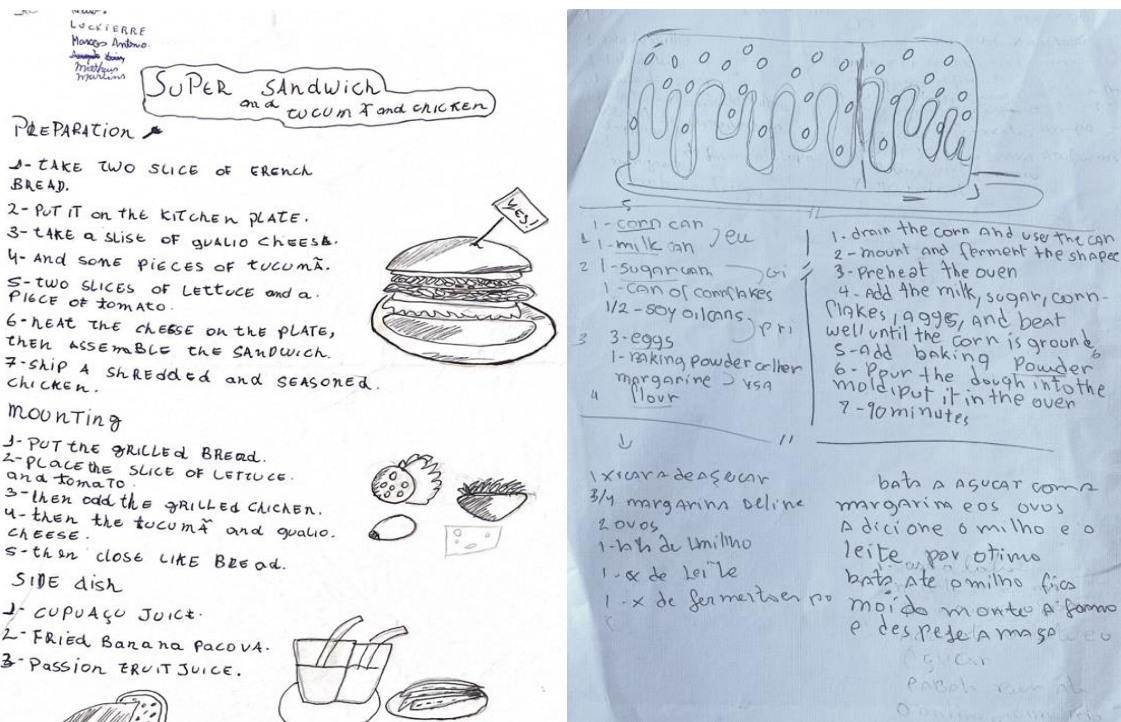 LUCKIERRE
Marcos Antonio.
Matheus
Martins
SUPER SANDWICH
and tucumã and chicken
PREPARATION
1- TAKE TWO SLICE OF FRENCH
BREAD.
2- PUT IT on the KITCHEN PLATE.
3- TAKE a SLISE OF GUALIO CHEESE.
4- AND SOME PIECES OF TUCUMÃ.
5- TWO SLICES OF LETTUCE and a
PIECE OF TOMATO.
6- HEAT THE CHEESE ON THE PLATE,
THEN ASSEMBLE THE SANDWICH.
7- SKIP A SHREDDED and SEASONED.
CHICKEN.
YES!
MOUNTING
1- PUT the GRILLED BREAD.
2- PLACE THE SLICE OF LETTUCE.
and TOMATO.
3- then add the GRILLED CHICKEN.
4- then the tucumã and gualio.
CHEESE.
5- then CLOSE LIKE BREAD.
SIDE dish
1- CUPUAÇU JUICE.
2- FRIED Banana PACOVA.
3- Passion FRUIT JUICE.
1- corn can
1- milk can
eu
2 1- sugar can
gi
1- can of cornflakes
1/2 - soy oil cans
pri
3 3- eggs
1- baking powder
margarine
rsa
4 flour
1- drain the corn and use the can
2- mount and ferment the shapee
3- Preheat the oven
4- Add the milk, sugar, corn-
flakes, agges, and beat
well until the corn is ground
5- add baking powder
6- Pour the dough into the
mold, put it in the oven
7- 90 minutes
1 xicara de açucar
3/4 margarina Deline
2 ovos
1- lata de milho
1- x de Leite
1- x de
bata a açucar coma
margarina e os ovos
Adicione o milho e o
leite por otimo
bata ate o milho fica
moído monte a
e despeje a
açucar